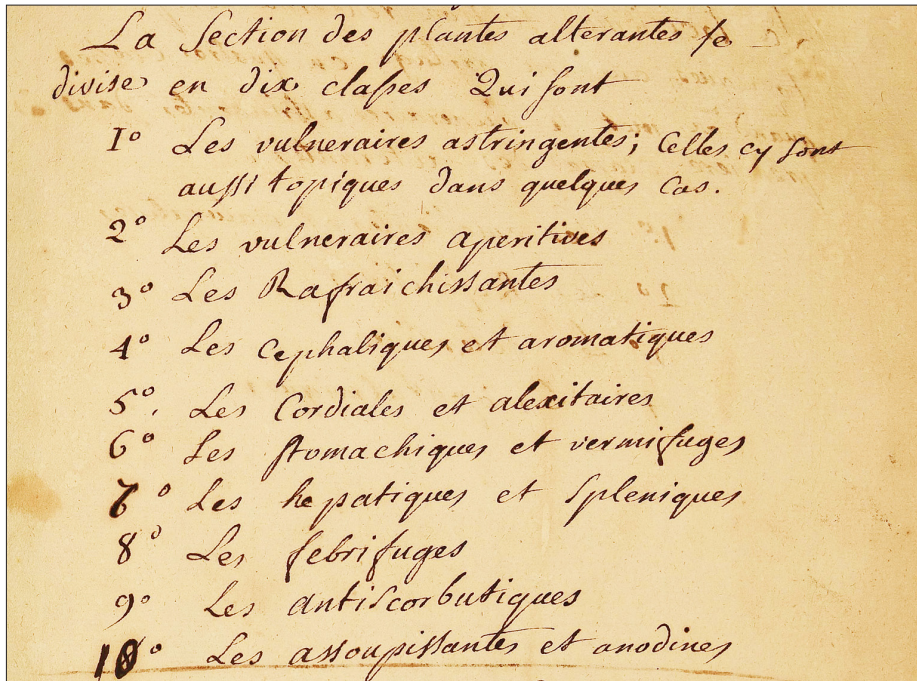 La Section des plantes alterantes se
divise en dix classes Qui sont
1° Les vulneraires astringentes; Celles cy sont
aussi topiques dans quelques Cas.
2° Les vulneraires aperitives
3° Les Rafraichissantes
4° Les Cephaliques et aromatiques
5°. Les Cordiales et alexitaires
6° Les stomachiques et vermifuges
7° Les hepatiques et spleniques
8° Les febrifuges
9° Les antiscorbutiques
10° Les assoupissantes et anodines